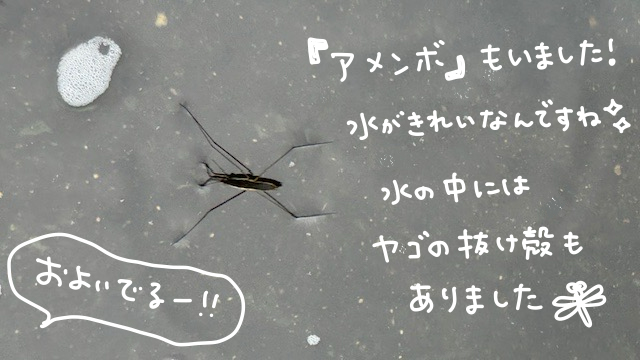 『アメンボ』もいました!
水がきれいなんですね
水の中には
ヤゴの抜け殻も
ありました
およいでるー!!